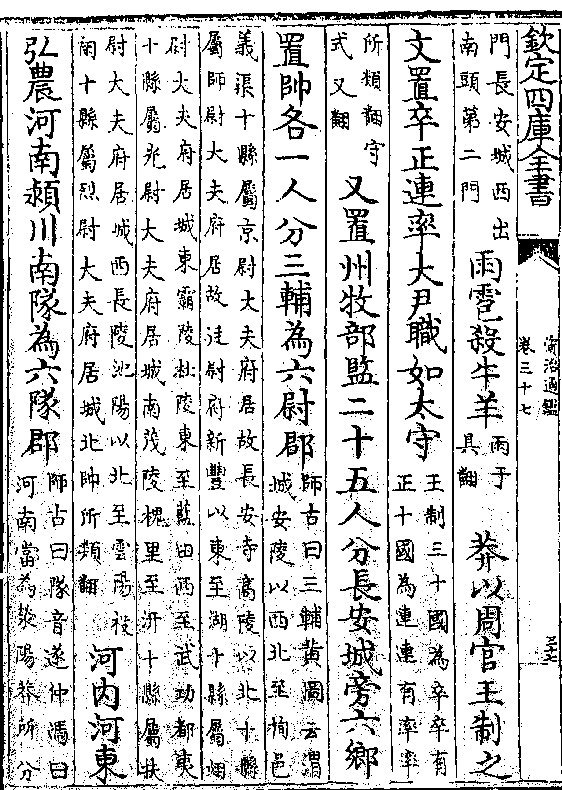 欽定四庫全書
資治通鑑
卷三十七
門長安城西出
南頭第二門
雨雹殺牛羊
雨于
具翻
莽以周官王制之
文置卒正連率大尹職如太守
王制三十國為卒卒有
正十國為連連有率率
所類翻守
式又翻
又置州牧部監二十五人分長安城旁六鄉
置帥各一人分三輔為六尉郡
師古曰三輔黄圖云渭
城安陵以西北至栒邑
義渠十縣屬京尉大夫府居故長安寺高陵以北十縣
屬師尉大夫府居故廷尉府新豐以東至湖十縣屬翊
尉大夫府居城東霸陵杜陵東至藍田西至武功郁夷
十縣屬光尉大夫府居城南茂陵槐里至汧十縣屬扶
尉大夫府居城西長陵池陽以北至雲陽祋
祤十縣屬烈尉大夫府居城北帥所類翻
河内河東
弘農河南潁川南隊為六隊郡
師古曰隊音遂仲馮曰
河南當為滎陽蓋所分